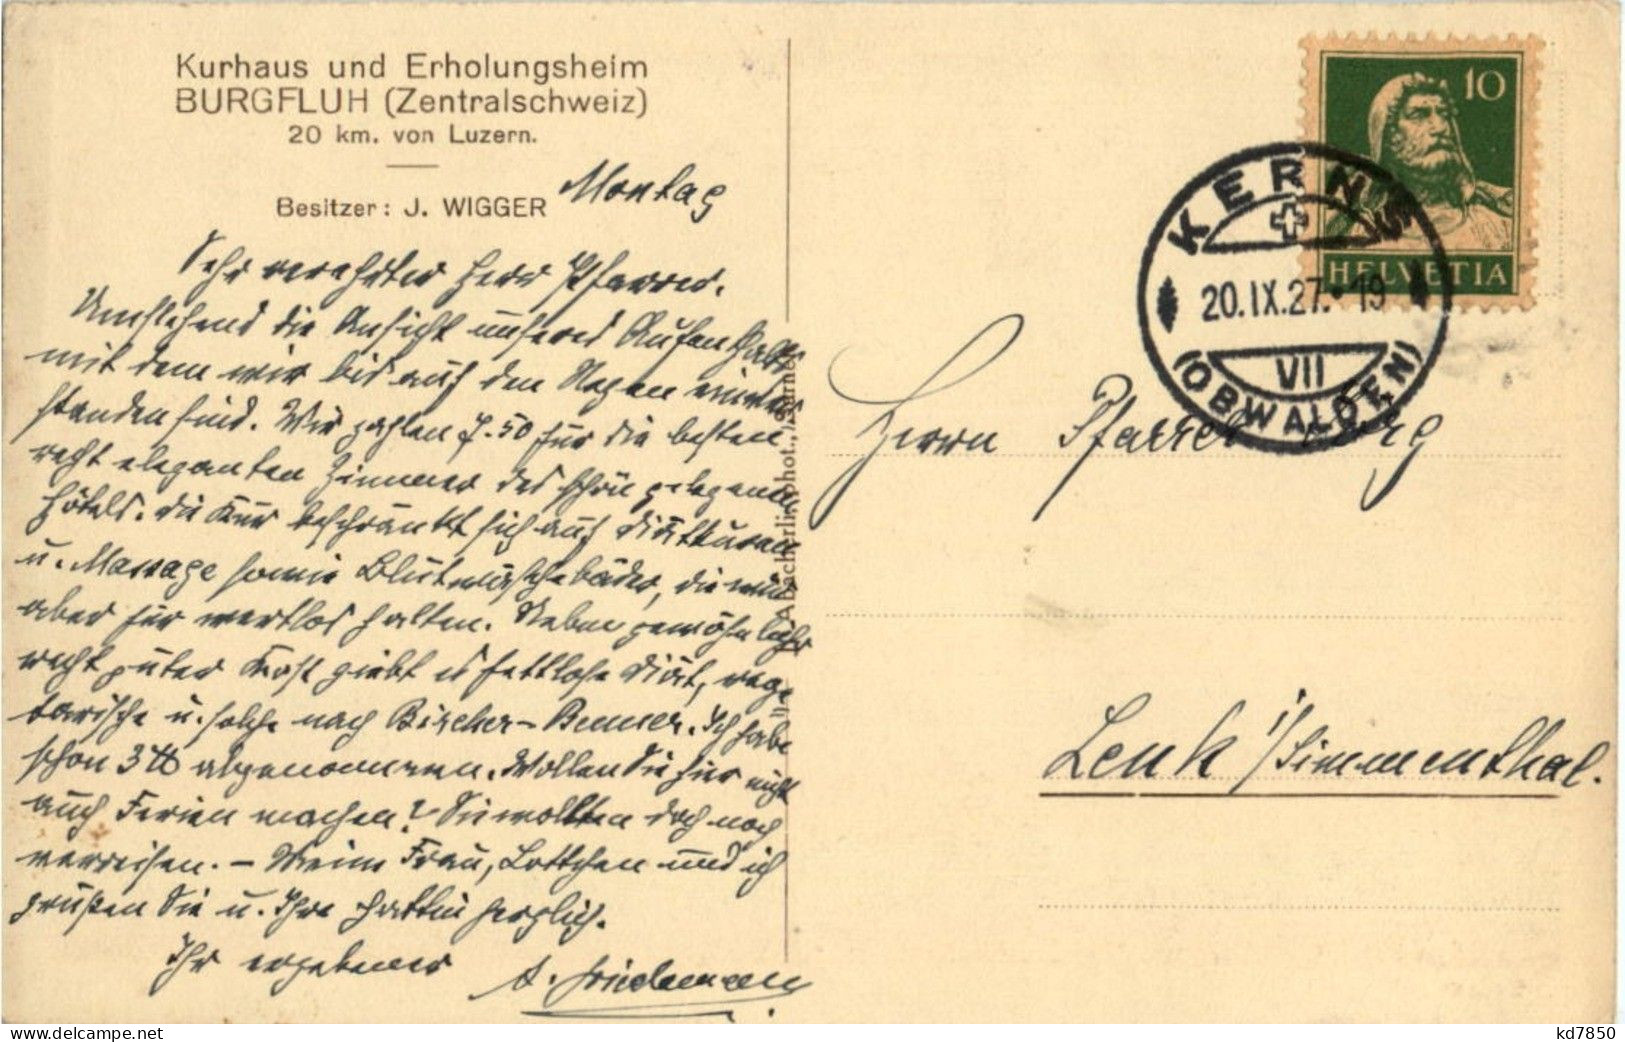 Kurhaus und Erholungsheim
BURGFLUH (Zentralschweiz)
20 km. von Luzern.
Besitzer: J. WIGGER
Montag
Sehr verehrter Herr Pfarrer.
Umstehend die Ansicht unseres Aufenthalts
mit dem wir bis auf den Regen einver
standen sind. Wir zahlen 7.50 für die besten
recht eleganten Zimmer des schön gelegenen
Hôtels. Die Kur beschränkt sich auf Diätkuren
u. Massage sowie Blutwäschebäder, die wir
aber für wertlos halten. Neben gewöhnlicher
recht guter Kost giebt es fettlose Diät, vege
tarische u. solche nach Bircher-Benner. Ich habe
schon 3 ℔ abgenommen. Wollen Sie hier nicht
auch Ferien machen? Sie wollten doch noch
verreisen. – Meine Frau, Lottchen und ich
grüßen Sie u. Ihre Gattin herzlich.
Ihr ergebener
A. Friedemann
Abächerli, phot., Sarnen
10
HELVETIA
KERNS
20.IX.27.-19
VII
(OBWALDEN)
Herrn Pfarrer
Lenk i/Simmenthal.
www.delcampe.net
kd7850